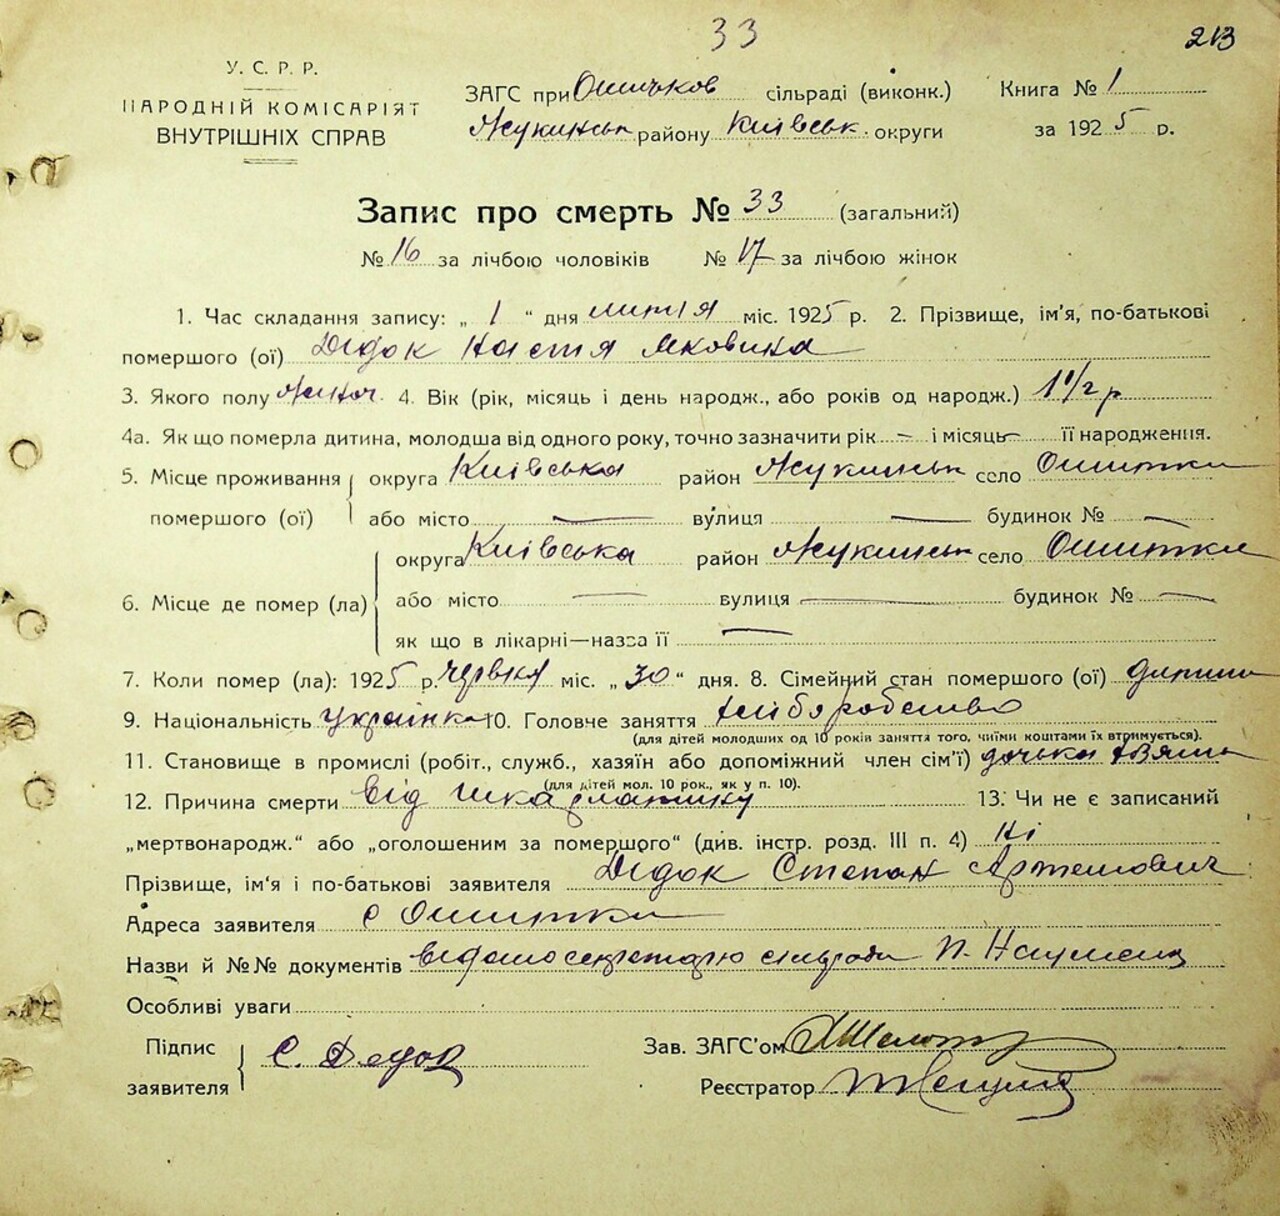 33
213
У. С. Р. Р.
НАРОДНІЙ КОМІСАРІЯТ
ВНУТРІШНІХ СПРАВ
ЗАГС при Ошитьков сільраді (виконк.)
Жукинськ району Київськ. округи
Книга № 1
за 1925 р.
Запис про смерть № 33 (загальний)
№ 16 за лічбою чоловіків № 17 за лічбою жінок
1. Час складання запису: „ 1 “ дня липня міс. 1925 р. 2. Прізвище, ім'я, по-батькові
помершого (ої) Дідок Настя Яковина
3. Якого полу жіноч. 4. Вік (рік, місяць і день народж., або років од народж.) 1 1/2 р
4а. Як що померла дитина, молодша від одного року, точно зазначити рік — і місяць — її народження.
5. Місце проживання округа Київська район Жукинськ село Ошитки
помершого (ої) або місто — вулиця — будинок № —
округа Київська район Жукинськ село Ошитки
6. Місце де помер (ла) або місто — вулиця — будинок № —
як що в лікарні—назва її —
7. Коли помер (ла): 1925 р. червня міс. „ 30 “ дня. 8. Сімейний стан помершого (ої) дитина
9. Національність українка 10. Головче заняття хліборобство
(для дітей молодших од 10 років заняття того, чиїми коштами їх втримується).
11. Становище в промислі (робіт., служб., хазяїн або допоміжний член сім'ї) дочька хазяїна
(для дітей мол. 10 рок., як у п. 10).
12. Причина смерти від шкарлатину 13. Чи не є записаний
„мертвонародж.“ або „оголошеним за помершого“ (див. інстр. розд. III п. 4) Ні
Прізвище, ім'я і по-батькові заявителя Дідок Степан Артемович
Адреса заявителя с Ошитки
Назви й №№ документів відомо секретарю сільради П. Науменц
Особливі уваги
Підпис
заявителя С. Дедок
Зав. ЗАГС'ом
Реєстратор